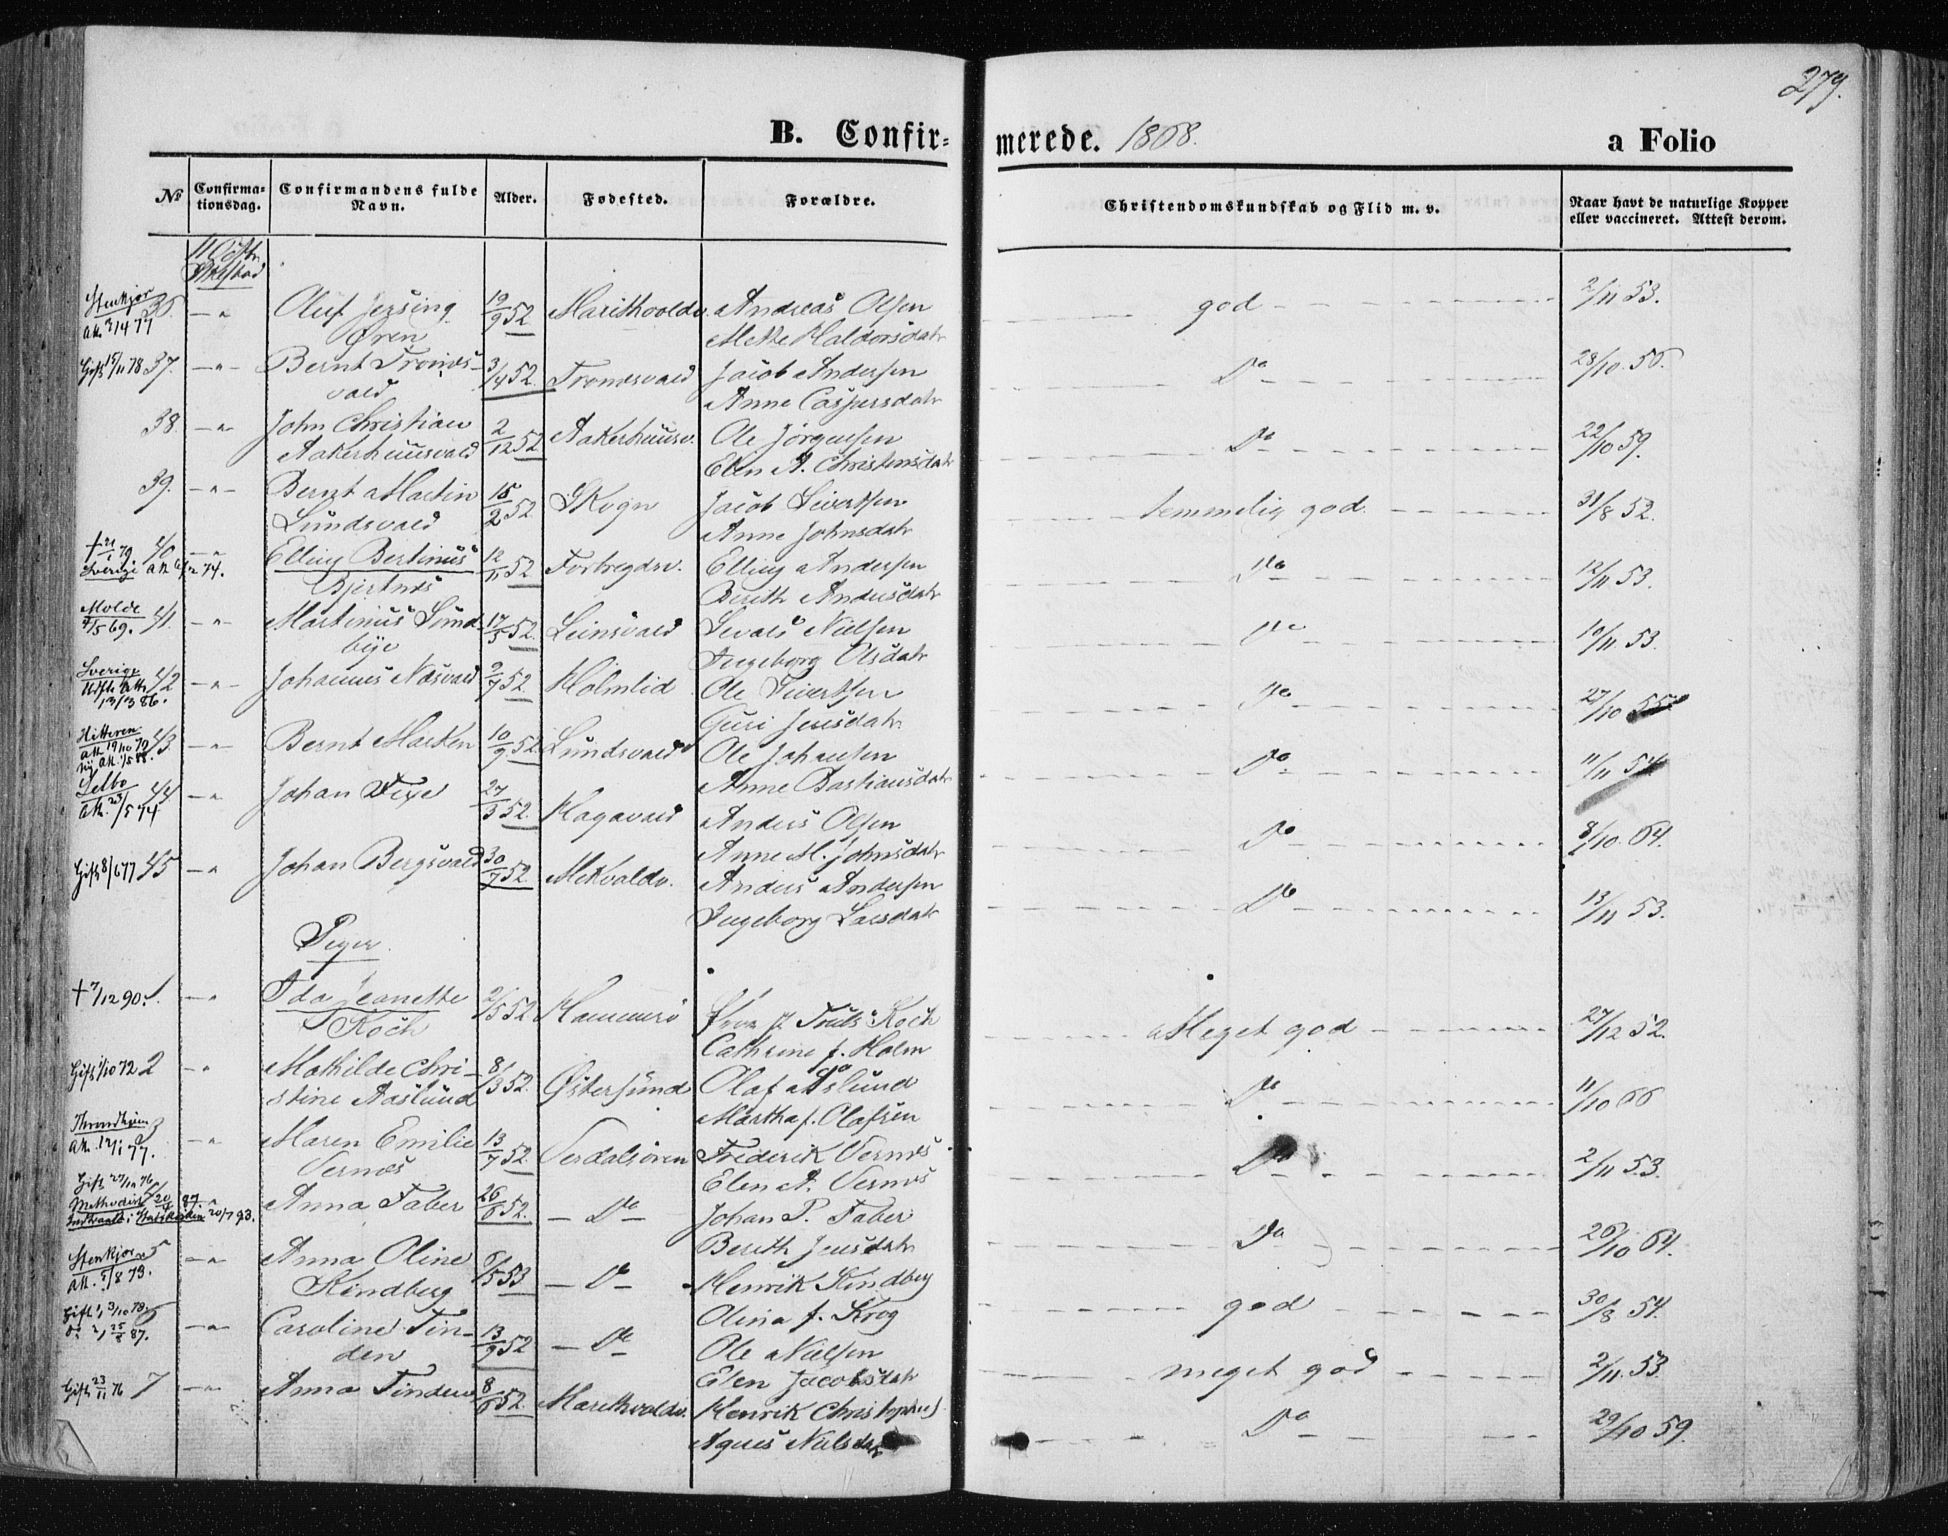 279.
B. Confir=
merede. 1868.
a Folio
No
Confirma-
tionsdag.
Confirmandens fulde
Navn.
Alder.
Fødested.
Forældre.
Christendomskundskab og Flid m. v.
Naar havt de naturlige Kopper
eller vaccineret. Attest derom.
11 Octbr.
Stenkjær
Att. 3/4 77
36. -"- Oluf Jessing 19/9 52 Marithvoldv. Andreas Olsen god 2/11 53.
Øren Mette Haldorsdatr
Gift 15/11 78 37. -"- Bernt Tromsvald 3/4 52. Tromsvald Jacob Andersen Do 28/10 56.
Anne Caspersdatr
38. -"- John Christian 2/12 52 Aakerhuusv. Ole Jørgensen Do 22/10 59.
Aakerhuusvald Elen A. Christensdatr
39. -"- Bernt Martin 15/2 52 Skogn Jacob Sivertsen temmelig god 31/8 52.
Lundsvald Anne Johnsdatr
40. -"- Elling Bertinus 12/11 52 Forbregdsv. Elling Andersen Do 12/11 53.
Bjertnæs Berith Andersdatr
Molde
4/5 69. 41. -"- Martinus Sund- 17/5 52. Leinsvald Sevald Nielsen Do 10/11 53.
bye Ingeborg Olsdatr
Sverige
13/3 86.
42 -"- Johannes Næsvald 2/7 52. Holmlid Ole Sivertsen Do 27/10 55.
Guri Jensdatr
Hitteren
43. -"- Bernt Marken 10/9 52 Lundsvald Ole Johansen Do 11/11 54
Anne Bastiansdatr
Selbo
Att. 23/5 74
44. -"- Johan Fixe 27/5 52. Hagavald Anders Olsen Do 8/10 64.
Anne M. Johnsdatr
Gift 8/6 77 45 -"- Johan Bergsvald 30/7 52. Mikvoldv. Anders Andersen Do 13/11 53.
Ingeborg Larsdatr
Piger.
† 7/12 90. 1. -"- Ida Jeanette 2/5 52 Hammerø Truls Koch Meget god 27/12 52.
Koch Cathrine f. Holm
Gift 1/10 72 2 -"- Mathilde Chri- 8/3 52. Østersund Olaf Aaslund Do 11/10 66
stine Aaslund Martha f. Olafsen
Throndhjem
Att. 12/1 77. 3 -"- Maren Emilie 13/7 52. Verdalsøren Frederik Vernes Do 2/11 53.
Vernes Elen A. Vernes
Gift 27/10 76
4 -"- Anna Faber 26/6 52. -Do- Johan P. Faber Do 26/10 64.
Berith Jensdatr
Stenkjær
5 -"- Anna Oline 6/5 53 -Do- Henrik Kindberg god 30/8 54.
Kindberg Olina f. Krog
6 -"- Caroline Tin- 13/9 52 -Do- Ole Nielsen meget god 2/11 53
den Elen Jacobsdatr
Gift 23/11 76 7 -"- Anna Tinden 8/6 52. Marithvoldv. Henrik Christophers. Do 29/10 59.
Agnes Nielsdatr